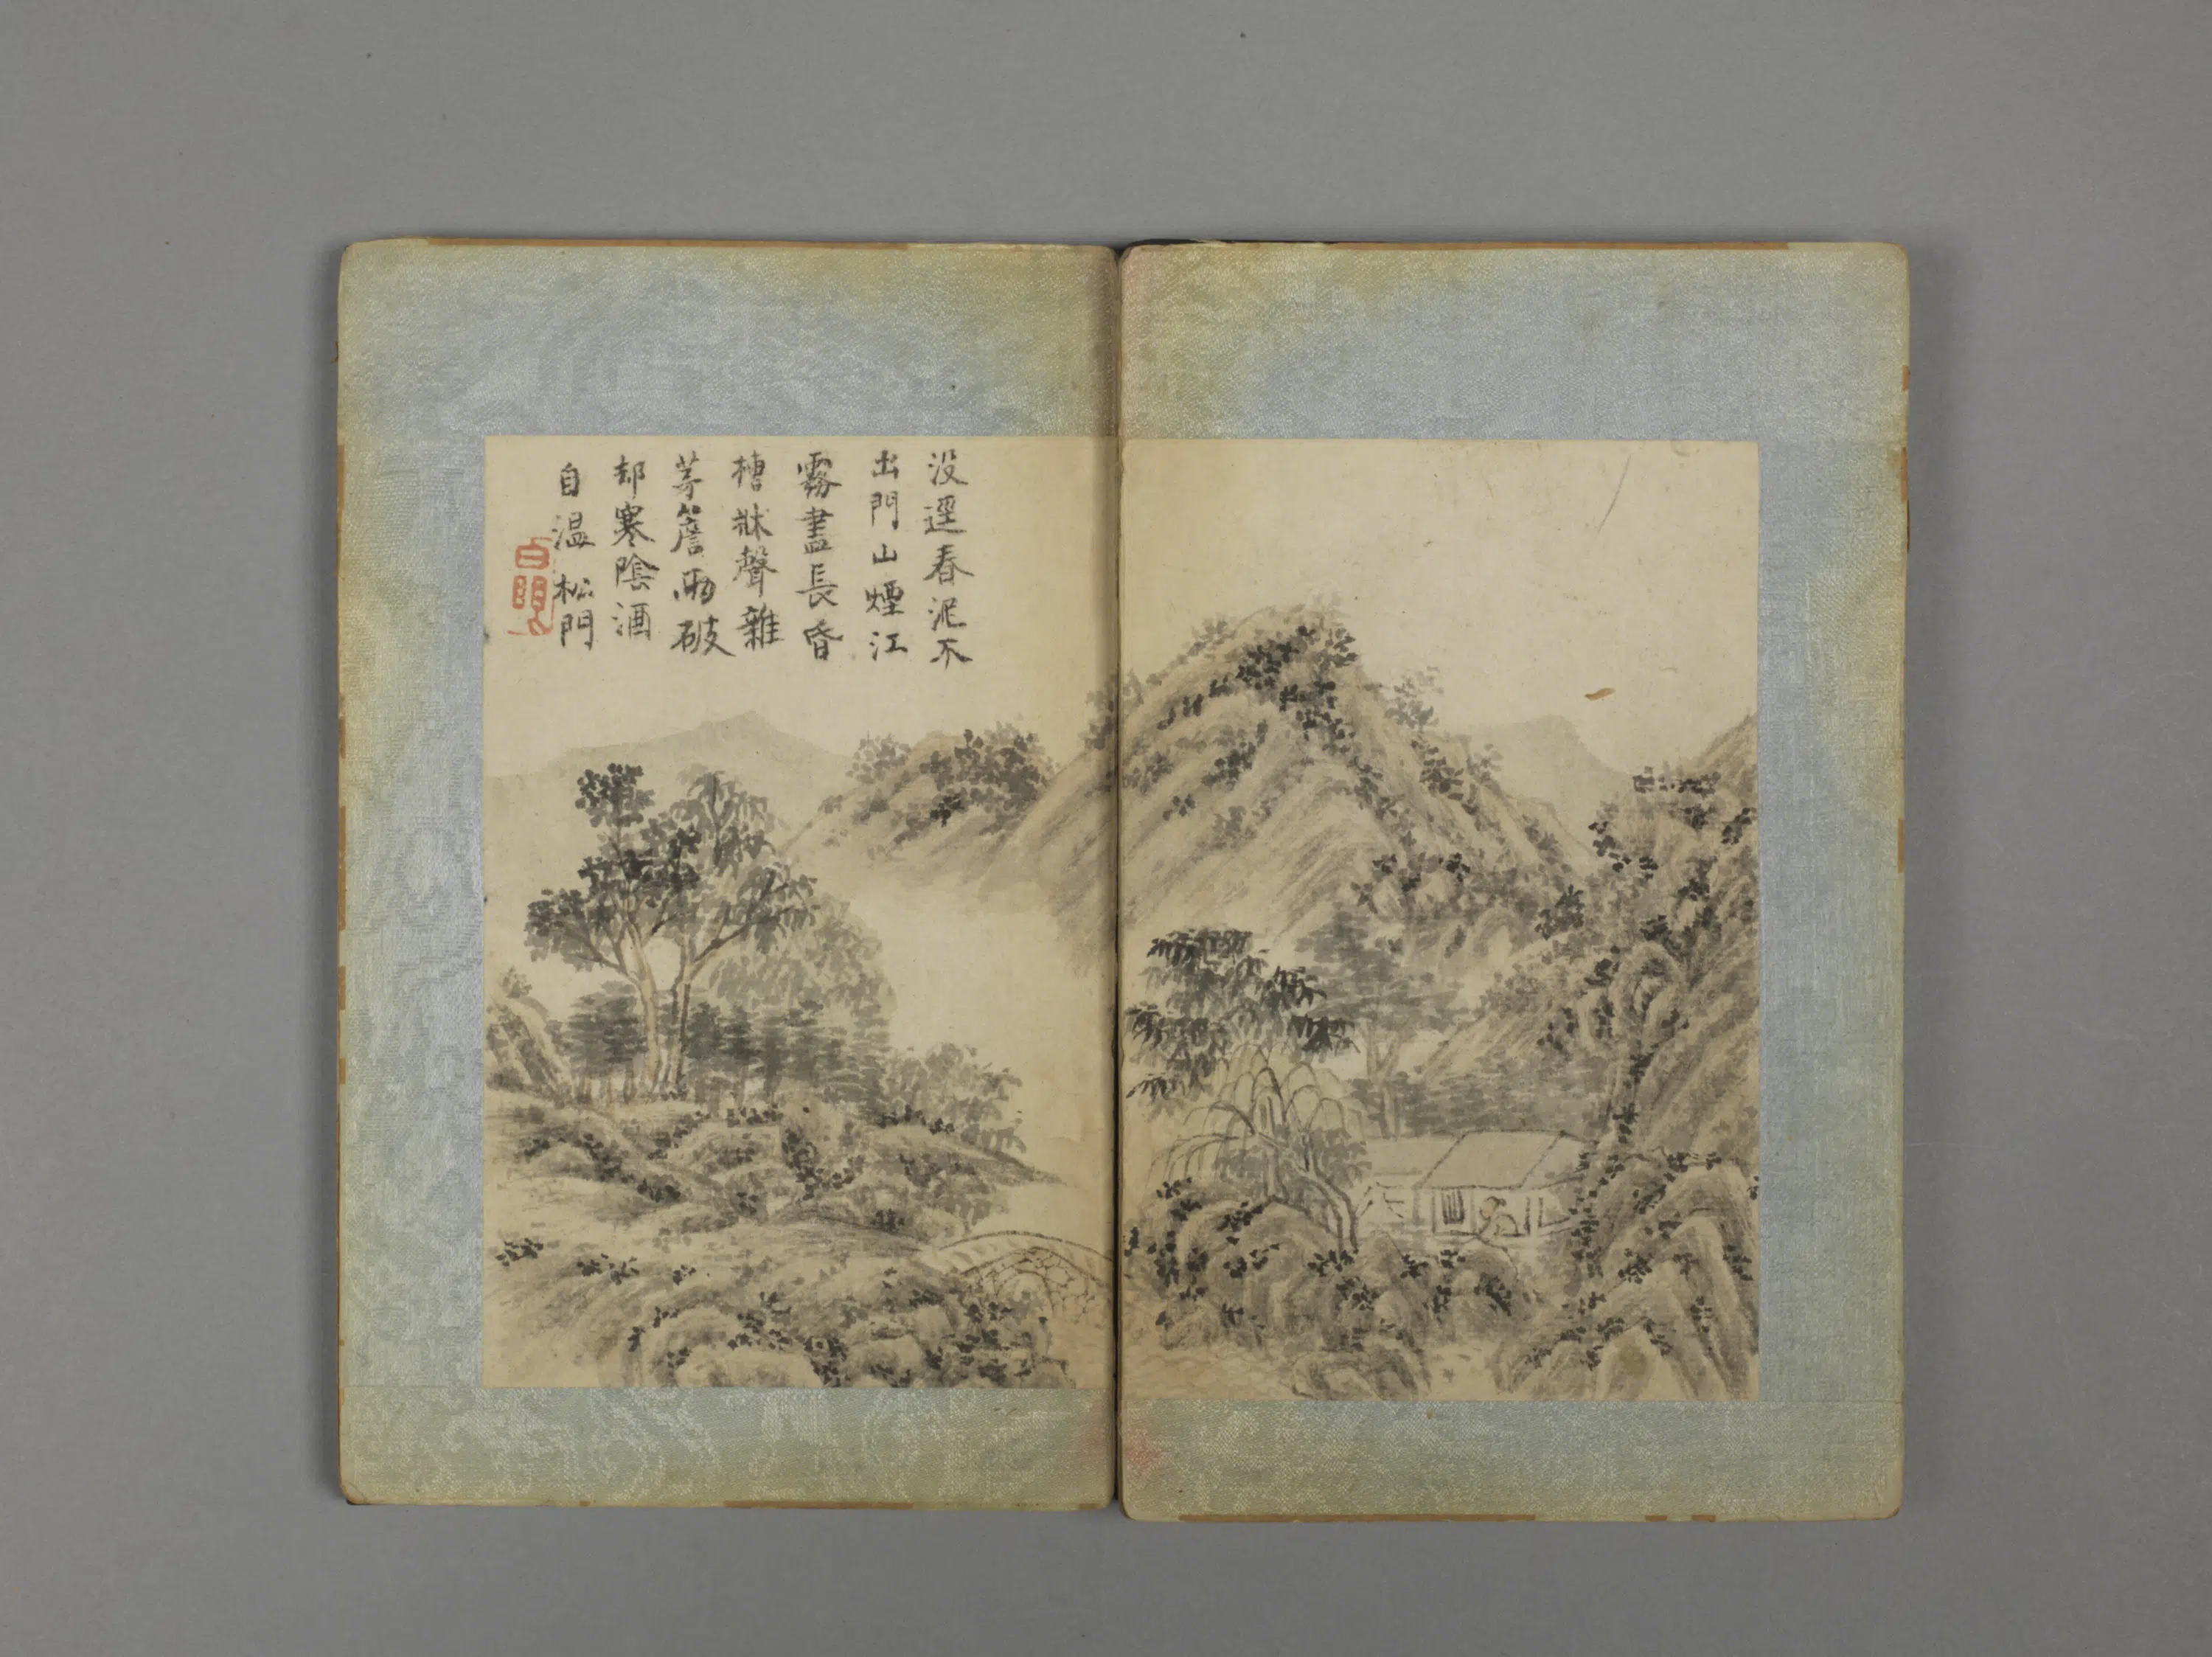 没逕春泥不
出門山煙江
霧晝長昏
槽牀聲雜
茅簷雨破
却寒陰酒
自温 松門